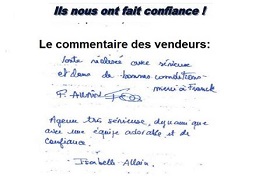 Ils nous ont fait confiance !
Le commentaire des vendeurs:
Vente réalisée avec sérieux
et dans de bonnes conditions
merci à Franck
Agence très sérieuse, dynamique
avec une équipe adorable et de
Confiance.
Isabelle Allain